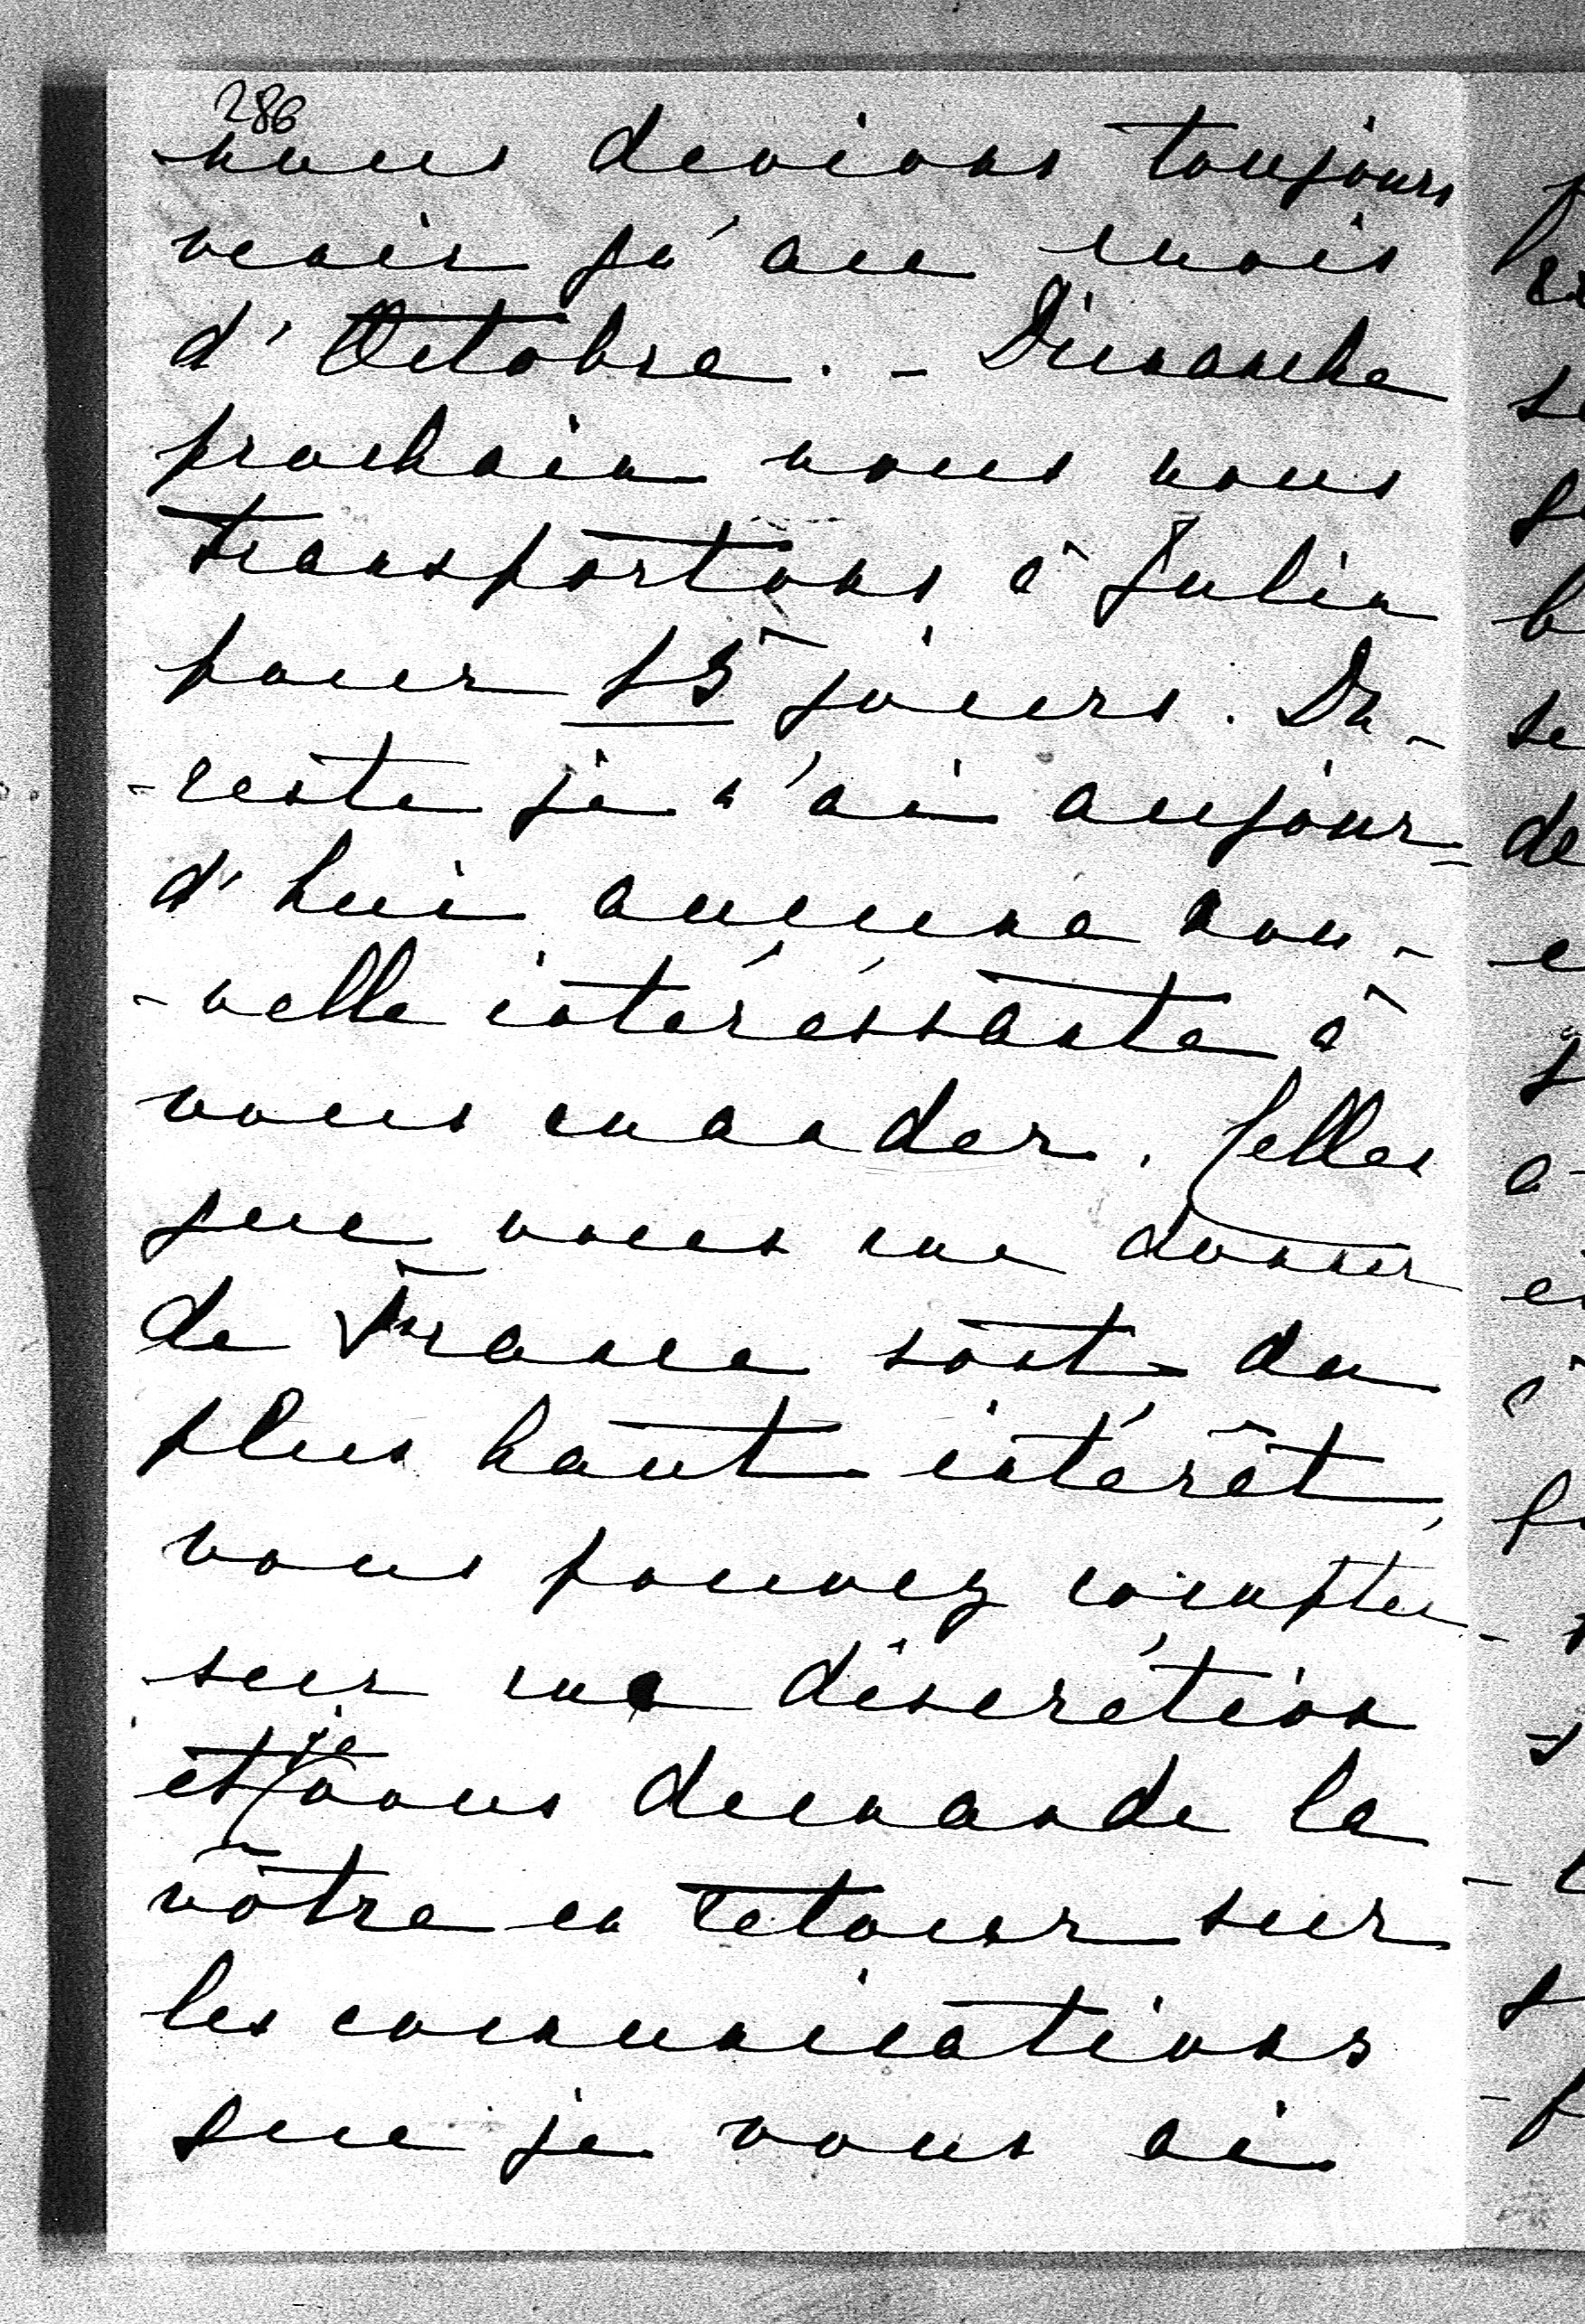 286
nous devions toujours
venir qu'au mois
d'Octobre. - Dimanche
prochain nous nous
transportons à Julin
pour 15 jours. Du-
-reste je n'ai aujour=
d'hui aucune nou-
-velle intéréssante à
vous mander. Celles
que vous me donnez
de France sont du
plus haut intérêt,
vous pouvez compter
sur ma discrétion
et je vous demande la
vôtre en retour sur
les communications
que je vous ai